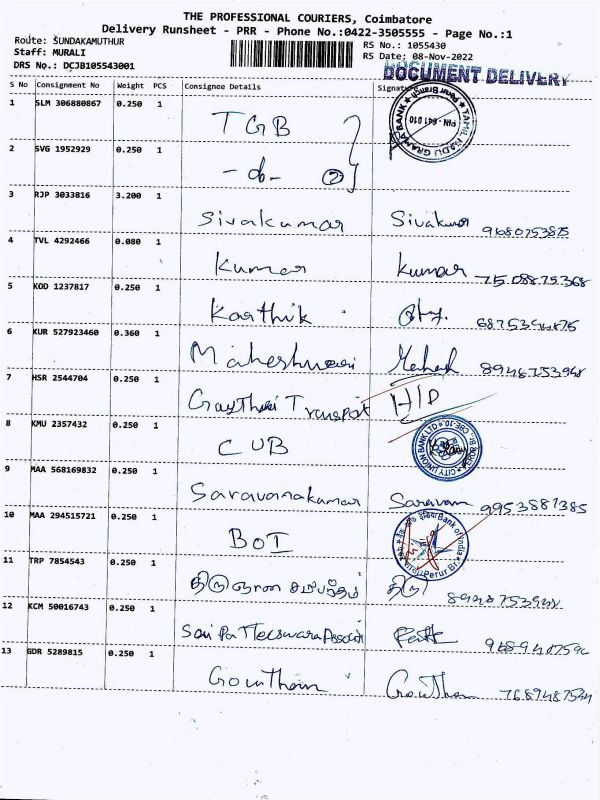 THE PROFESSIONAL COURIERS, Coimbatore
Delivery Runsheet - PRR - Phone No.:0422-3505555 - Page No.:1
Route: SUNDAKAMUTHUR
RS No.: 1055430
Staff: MURALI
RS Date: 08-Nov-2022
DRS No.: DCJB105543001
DOCUMENT DELIVERY
S No Consignment No Weight PCS Consignee Details Signature
1 SLM 306880867 0.250 1 TGB
TAMIL NADU GRAMA BANK Perur Branch PIN-641 010
2 SVG 1952929 0.250 1 -do- 2
3 RJP 3033816 3.200 1 Sivakumar Sivakumar 9680753875
4 TVL 4292466 0.080 1 Kumar Kumar 7508875368
5 KOD 1237817 0.250 1 Karthik
6 KUR 527923460 0.360 1 Maheshwari Mahesh 8948753948
7 HSR 2544704 0.250 1 Gayathri Transport H/D
8 KMU 2357432 0.250 1 CUB
CITY UNION BANK LTD
9 MAA 568169832 0.250 1 Saravanakumar Saravan 9953881385
10 MAA 294515721 0.250 1 BOI
Bank of India Perur Br.
11 TRP 7854543 0.250 1 திருஞானசம்பந்தம் திரு
12 KCM 50016743 0.250 1
13 GDR 5289815 0.250 1 Gowtham Gowtham